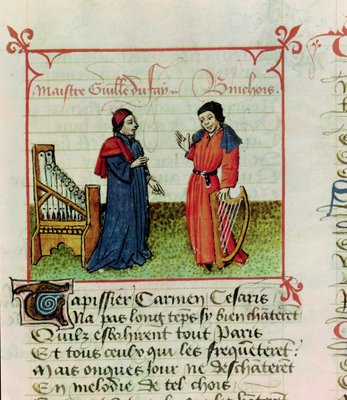 Maistre Guille du fay Binchois
Tapissier Carmen Cesaris
Na pas long teps sy bien chāteret
Quilz esbahirent tout Paris
Et tous ceulx qui les frequēteret:
Mais onques jour ne deschāteret
En melodie de tel chois